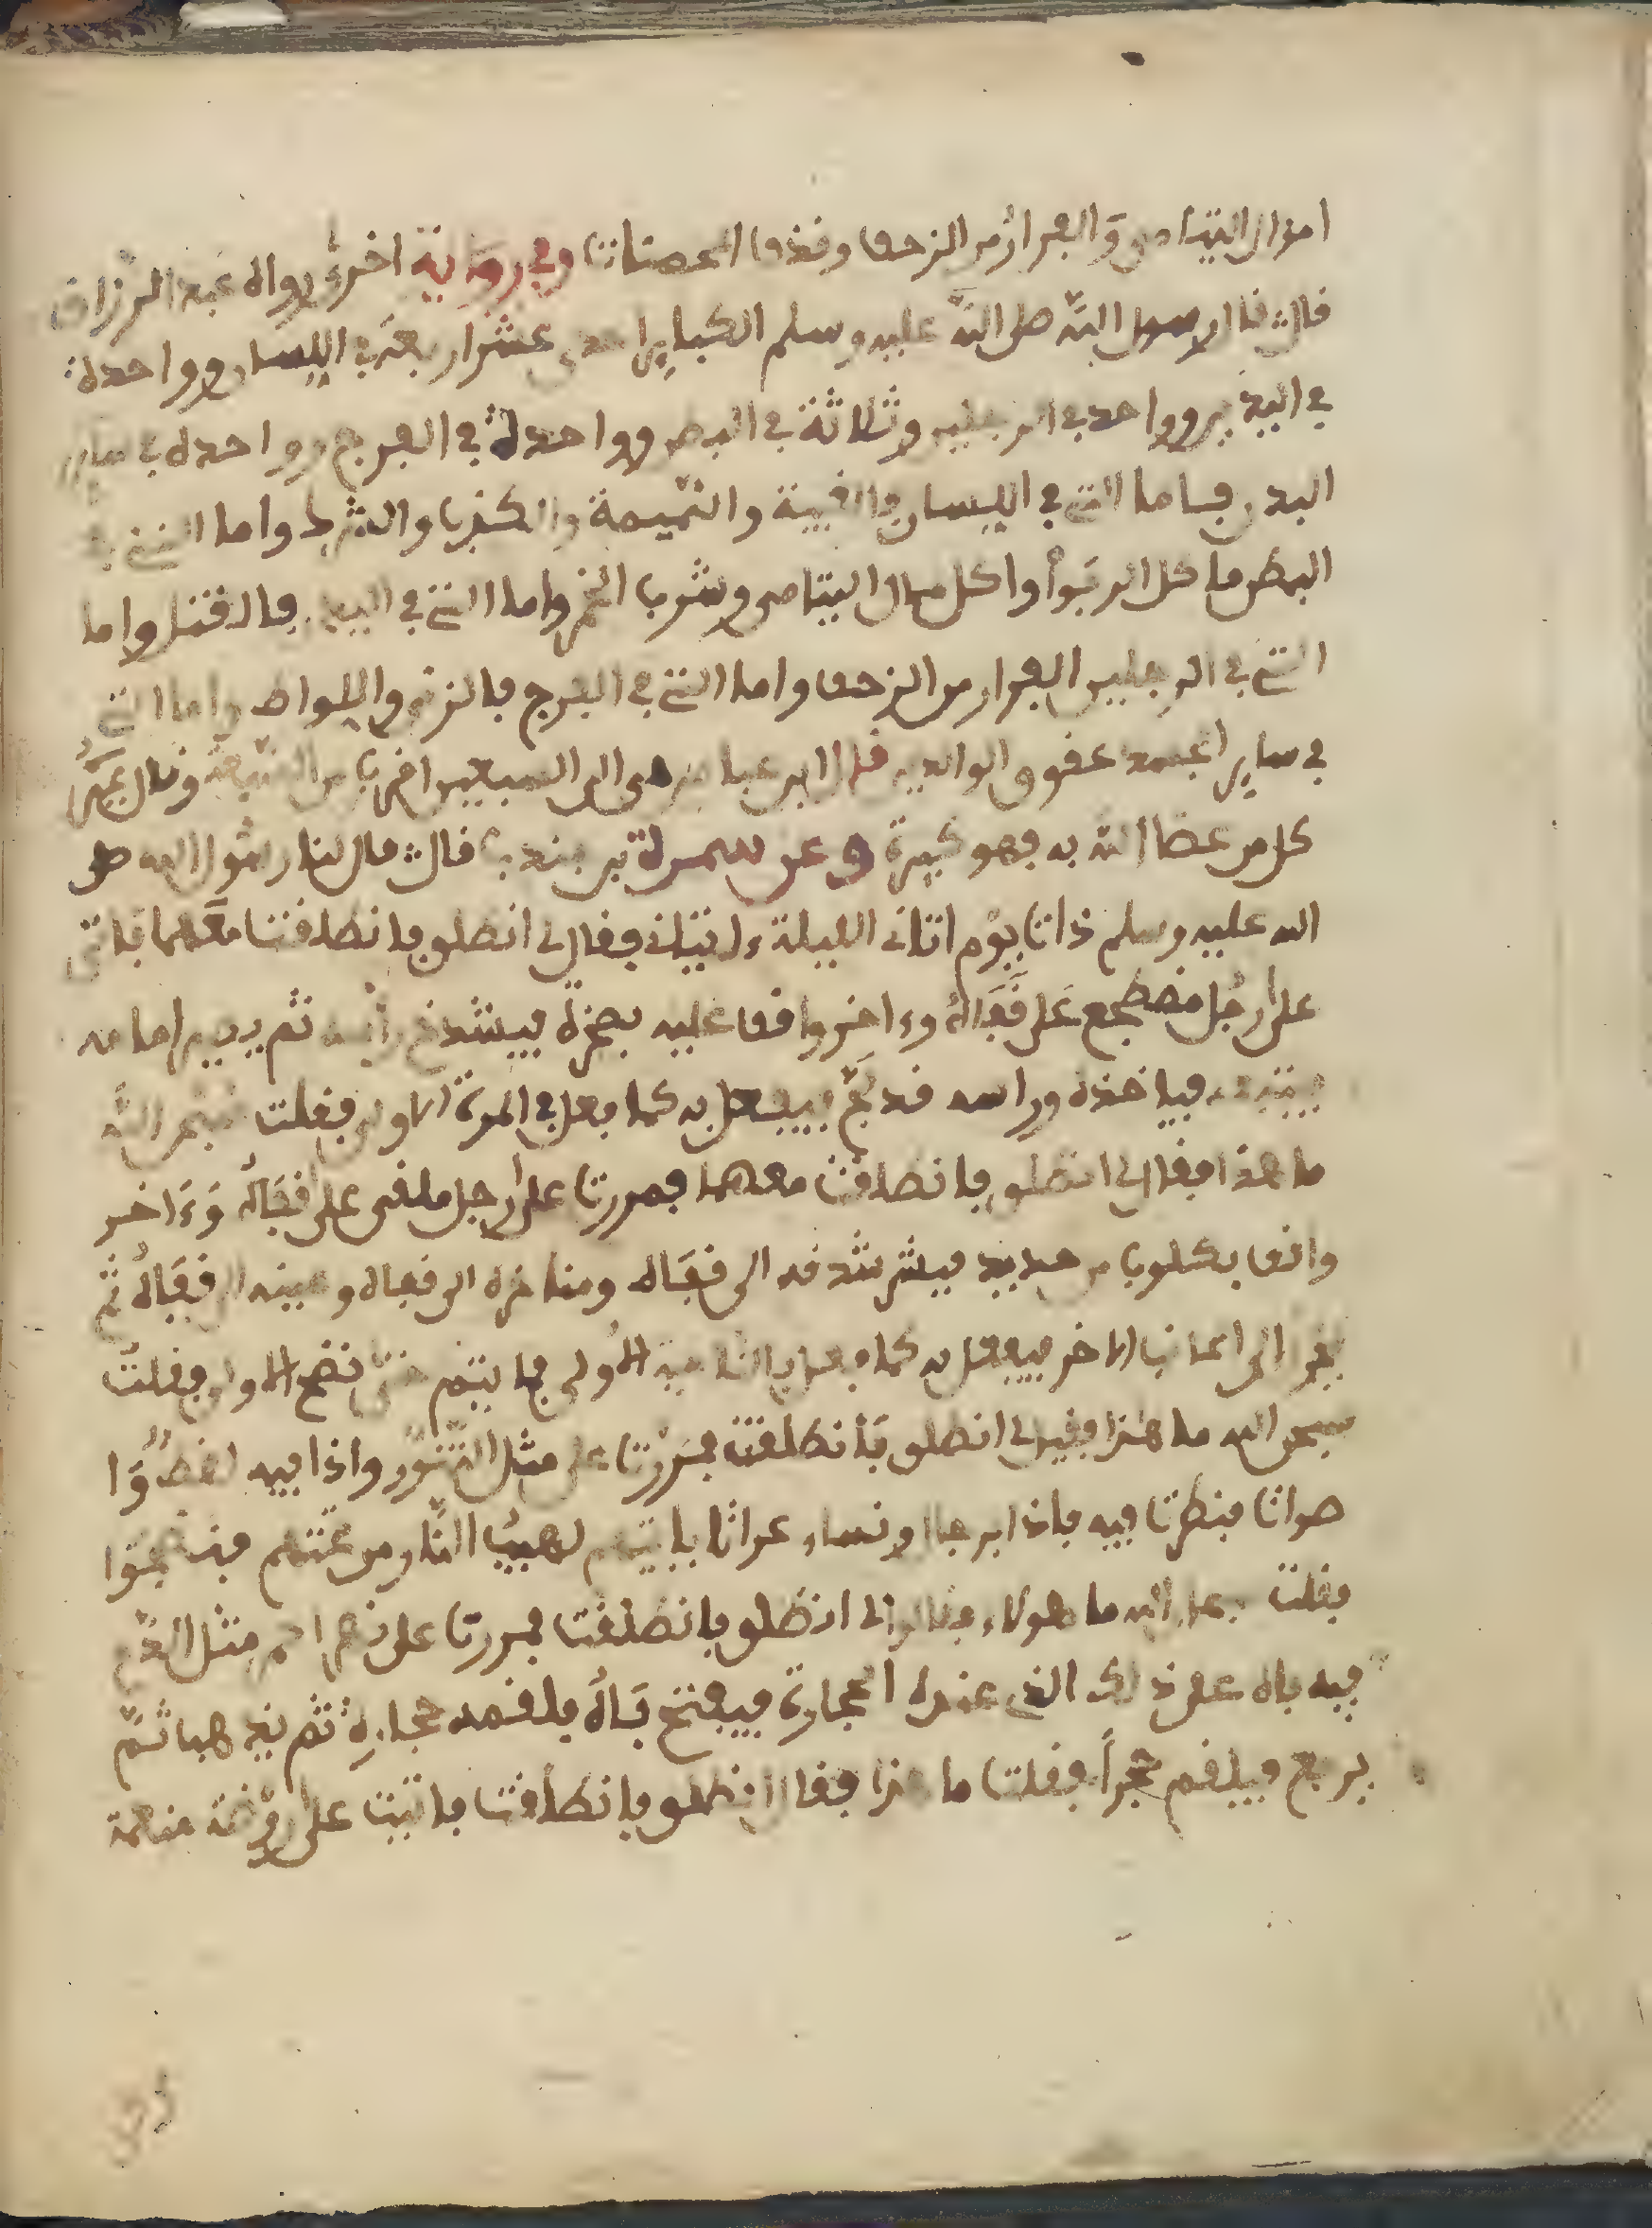 اموال اليتامى والفرار من الزحف وقذف المحصنات وفي رواية اخرى رواه عبد الرزاق
قال قال رسول الله صلى الله عليه وسلم الكباير احدى عشر اربعة في اللسان وواحدة
في اليدين وواحد في الرجلين وثلاثة في البطن وواحدة في الفرج وواحدة في ساير
البدن فاما التي في اللسان فالغيبة والنميمة والكذب والشرك واما التي في
البطن فاكل الربوا واكل مال اليتامى وشرب الخمر واما التي في اليد فالقتل واما
التي في الرجلين الفرار من الزحف واما التي في الفرج فالزنى واللواط واما التي
في ساير الجسد عقوق الوالدين قال ابن عباس هي الى السبعين اقرب من السبعة وقال
كل من عصا الله به فهو كبيرة وعن سمرة بن جندب قال قال لنا رسول الله صلى
الله عليه وسلم ذات يوم اتاني الليلة ءاتيان فقال لي انطلق فانطلقت معهما فاتى
على رجل مضطجع على قفاه وءاخر واقف عليه بصخرة فيشدخ راسه ثم يرميها امامه
فيتبعه فياخذه وراسه قد فيفعل به كما فعل في المرة الاولى فقلت سبحن الله
ما هذا فقال لي انطلق فانطلقت معهما فمررت على رجل ملقى على قفاه وءاخر
واقف بكلوب من حديد فيشر شدقه الى قفاه ومنخره الى قفاه وعينه الى قفاه ثم
الى الجانب الاخر فيفعل به كما فعل بالناحية الاولى فما يتم حتى الاولى فقلت
سبحن الله ما هذا فقيل لي انطلق فانطلقت فمررت على مثل التنور واذا فيه لغط وا
صوات فنظرت فيه فاذا برجال ونساء عراتا ياتيهم لهيب النار من تحتهم
فقلت سبحن الله ما هولاء فقال لي انطلق فانطلقت فمررت على نهر احمر مثل الدم
فيه ذلك الذي عنده الحجارة فيفتح فاه فيلقمه حجارة ثم يذهب ثم
يرجع فيلقم حجرا فقلت ما هذا فقال انطلق فانطلقت فاتيت على روضة